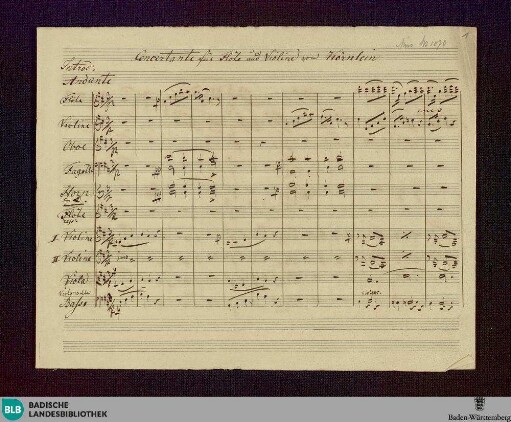 Concertante für Flöte und Violine von Körnlein
Mus. Hs. 1070
1
Introd:
Andante
Flöte
Violine
Oboe
Fagott
Horn
Flöte
I. Violine
II. Violine
Viola
Basso
BLB BADISCHE
LANDESBIBLIOTHEK
Baden-Württemberg